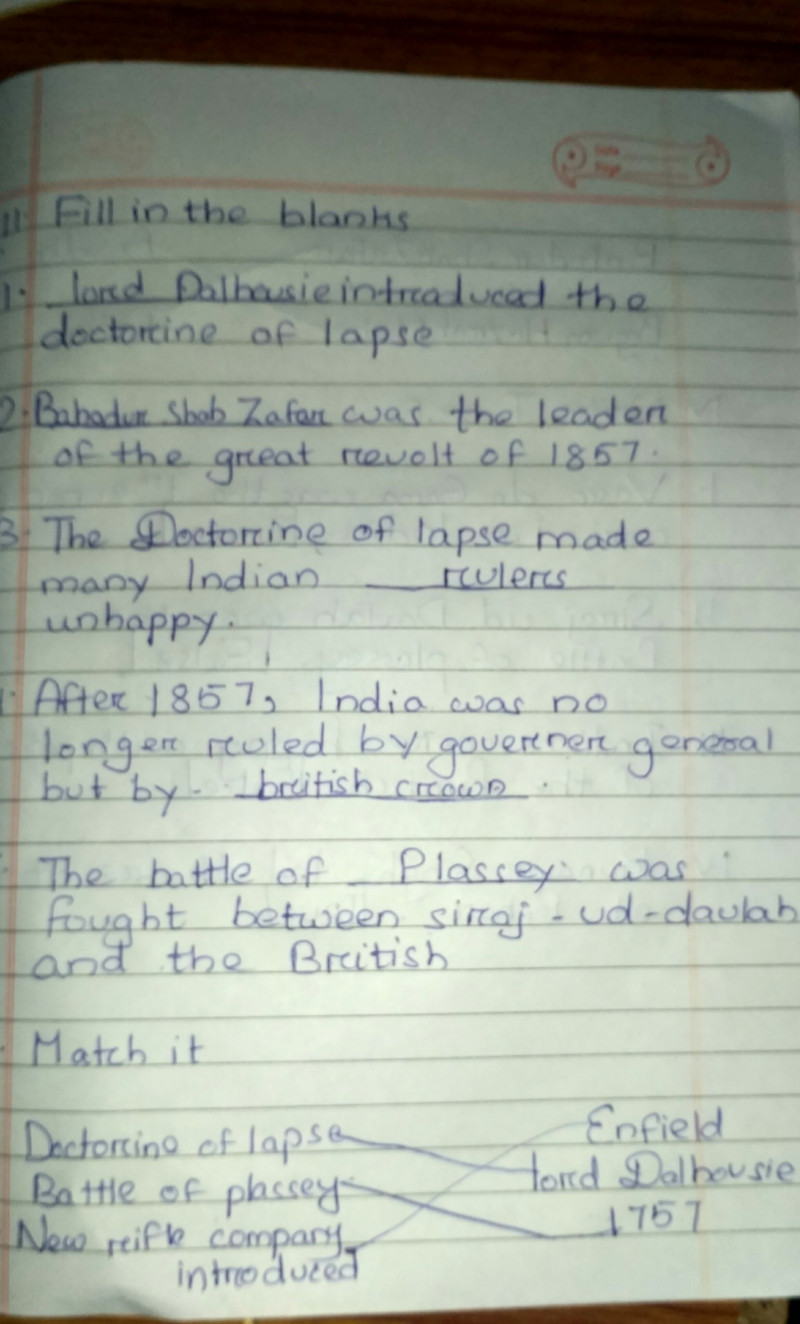 II. Fill in the blanks
1. lord Dalhousie introduced the
doctorine of lapse
2. Bahadur Shah Zafar was the leader
of the great revolt of 1857.
3. The Doctorine of lapse made
many Indian rulers
unhappy.
After 1857, India was no
longer ruled by governer general
but by - british crown.
The battle of Plassey was
fought between sirraj - ud - daulah
and the British
Match it
Doctorine of lapse Enfield
Battle of plassey lord Dalhousie
New rifle company 1757
introduced